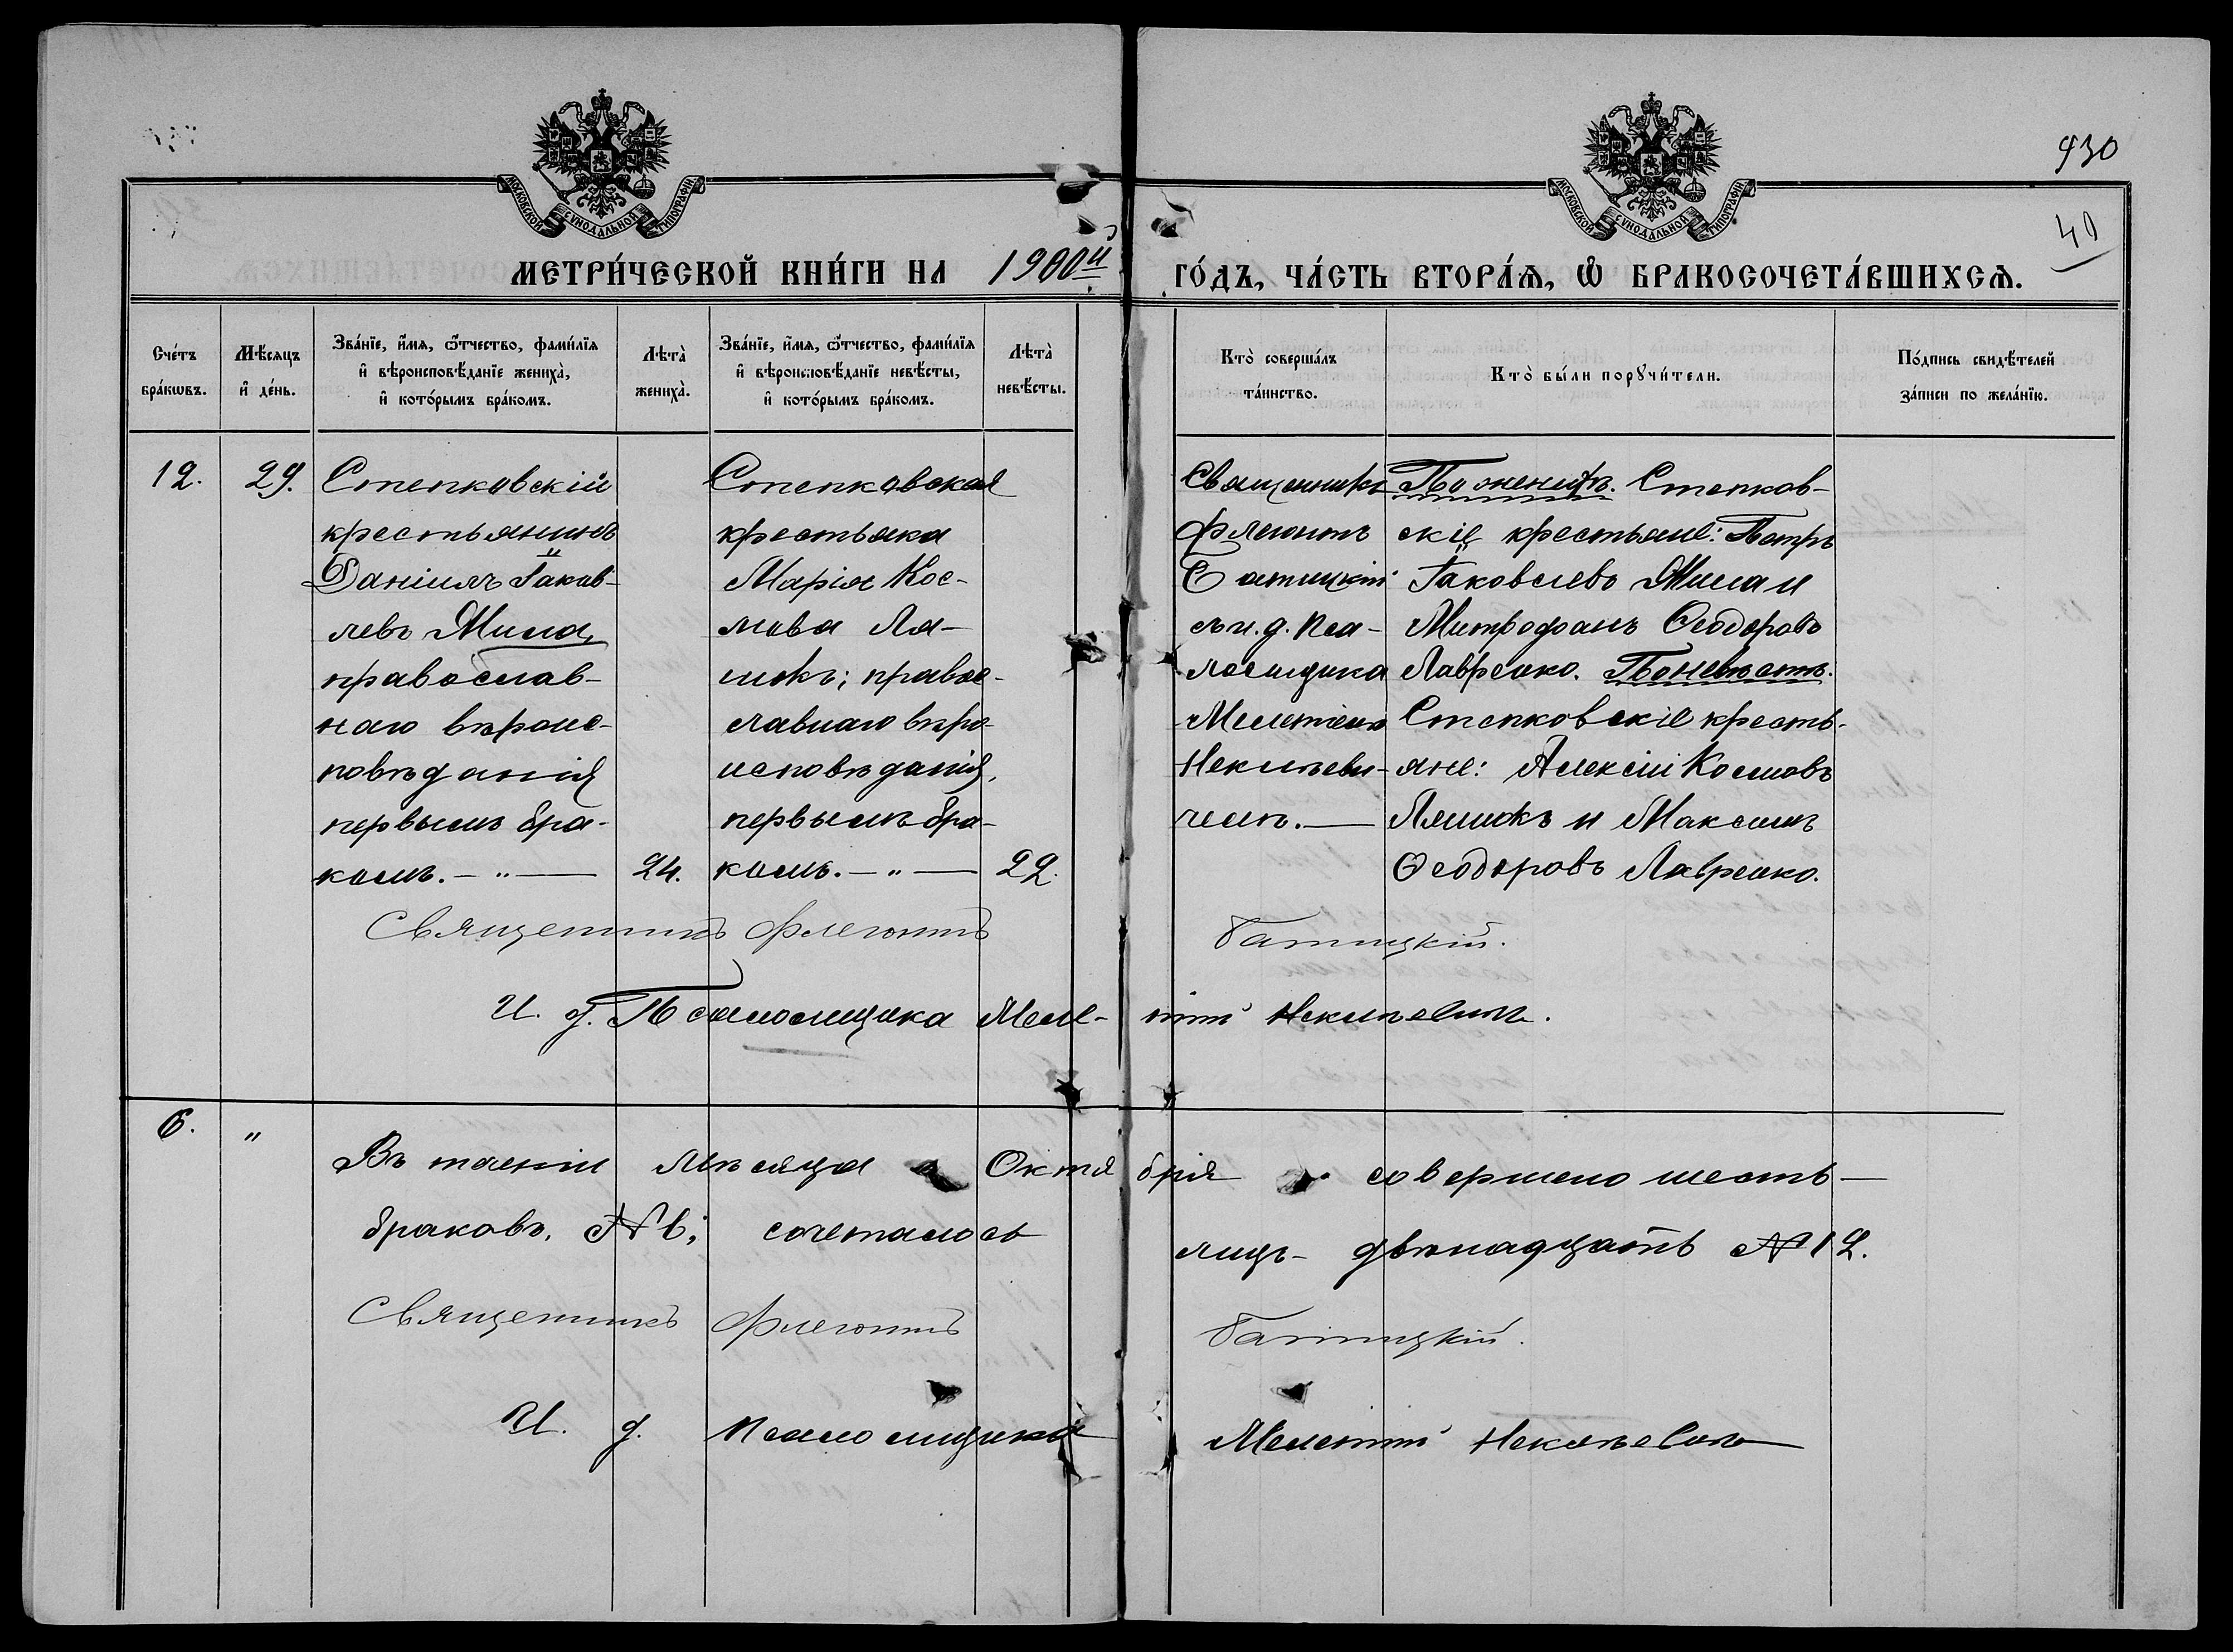 930
40
МОСКОВСКОЙ СУНОДАЛЬНОЙ ТИПОГРАФІИ
МОСКОВСКОЙ СУНОДАЛЬНОЙ ТИПОГРАФІИ
МЕТРИ́ЧЕСКОЙ КНИ́ГИ НА 1900й ГО́ДЪ, ЧА́СТЬ ВТОРА́Ѧ, Ѽ БРАКОСОЧЕТА́ВШИХСѦ.
Сче́тъ
бра́кѡвъ.
Мѣ́сяцъ
и҆ де́нь.
Зва́нїе, и҆́мя, ѻ҆́тчество, фами́лїя
и҆ вѣроисповѣ́данїе жениха̀,
и҆ кото́рымъ бра́комъ.
Лѣта̀
жениха̀.
Зва́нїе, и҆́мя, ѻ҆́тчество, фами́лїя
и҆ вѣроисповѣ́данїе невѣ́сты,
и҆ кото́рымъ бра́комъ.
Лѣта̀
невѣ́сты.
Кто̀ соверша́лъ
та́инство.
Кто̀ бы́ли порꙋчи́тели.
По́дпись свидѣ́телей
за́писи по жела́нїю.
12.
29.
Степковскій
крестьянинъ
Даніилъ Іаков-
левъ Мила,
православ-
наго вѣроис-
повѣданія
первымъ бра-
комъ. — " —
24.
Степковская
крестьянка
Марія Кос-
мова Ля-
шокъ; правос-
лавнаго вѣро-
исповѣданія,
первымъ бра-
комъ. — " —
22.
Священникъ
Флегонтъ
Батицкій
съ и. д. пса-
ломщика
Мелетіемъ
Некѣлеви-
чемъ. —
По женихѣ. Степков-
скіе крестьяне: Петръ
Іаковлевъ Мила и
Митрофанъ Ѳеодоровъ
Лавренко. По невѣстѣ.
Степковскіе кресть-
яне: Алексій Космовъ
Ляшокъ и Максимъ
Ѳеодоровъ Лавренко.
Священникъ Флегонтъ Батицкій.
И. д. Псаломщика Меле- тій
6.
"
Въ теченіи мѣсяца Октя брія совершено шесть —
браковъ, № 6; сочеталось лицъ – двѣнадцать № 12.
Священникъ Флегонтъ Батицкій.
И. д. псаломщика Мелетій